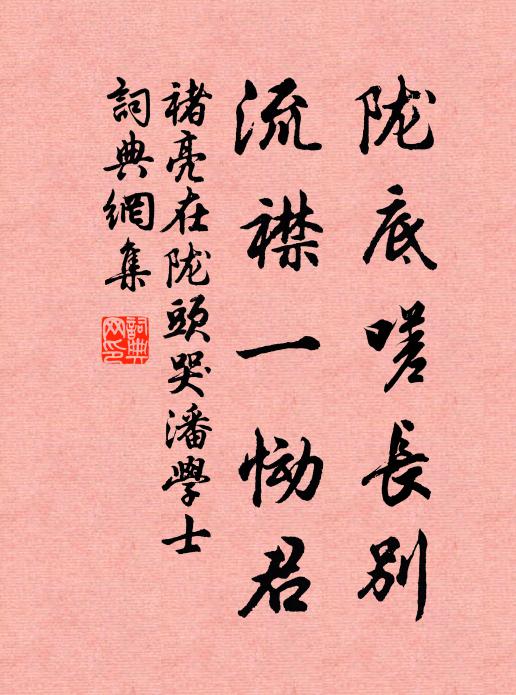 陇底嗟长别
流襟一恸君
褚亮在陇頭哭潘學士
詞典網集
詞典网印